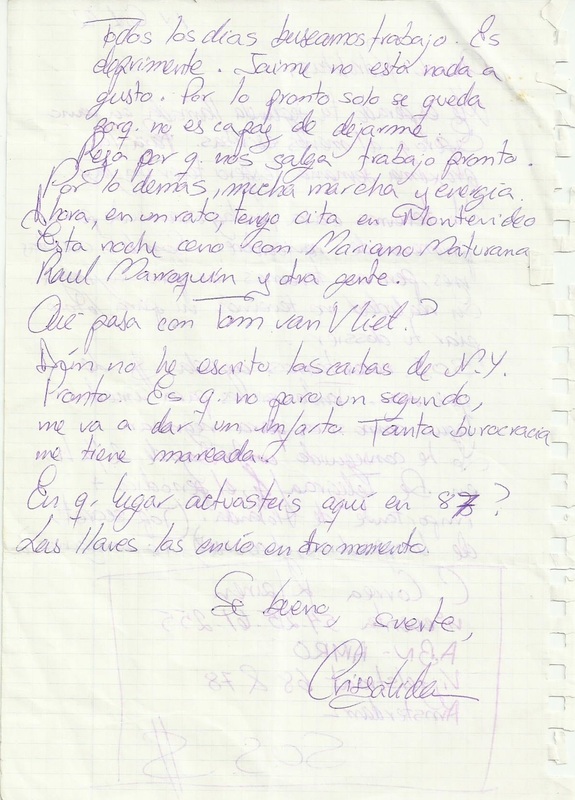 Todos los dias buscamos trabajo. Es
deprimente. Jaime no está nada a
gusto. Por lo pronto solo se queda
porq. no es capaz de dejarme.
Reza por q. nos salga trabajo pronto.
Por lo demás, mucha marcha y energia.
Ahora, en un rato, tengo cita en Montevideo
Esta noche ceno con Mariano Maturana
Raul Marroquin y otra gente.
Qué pasa con Tom van Vliet?
Aún no he escrito las cartas de N.Y.
Pronto. Es q. no paro un segundo,
me va a dar un infarto Tanta burocracia
me tiene mareada.
En q. lugar actuasteis aquí en 87?
Las llaves las envío en otro momento.
Se bueno, suerte,